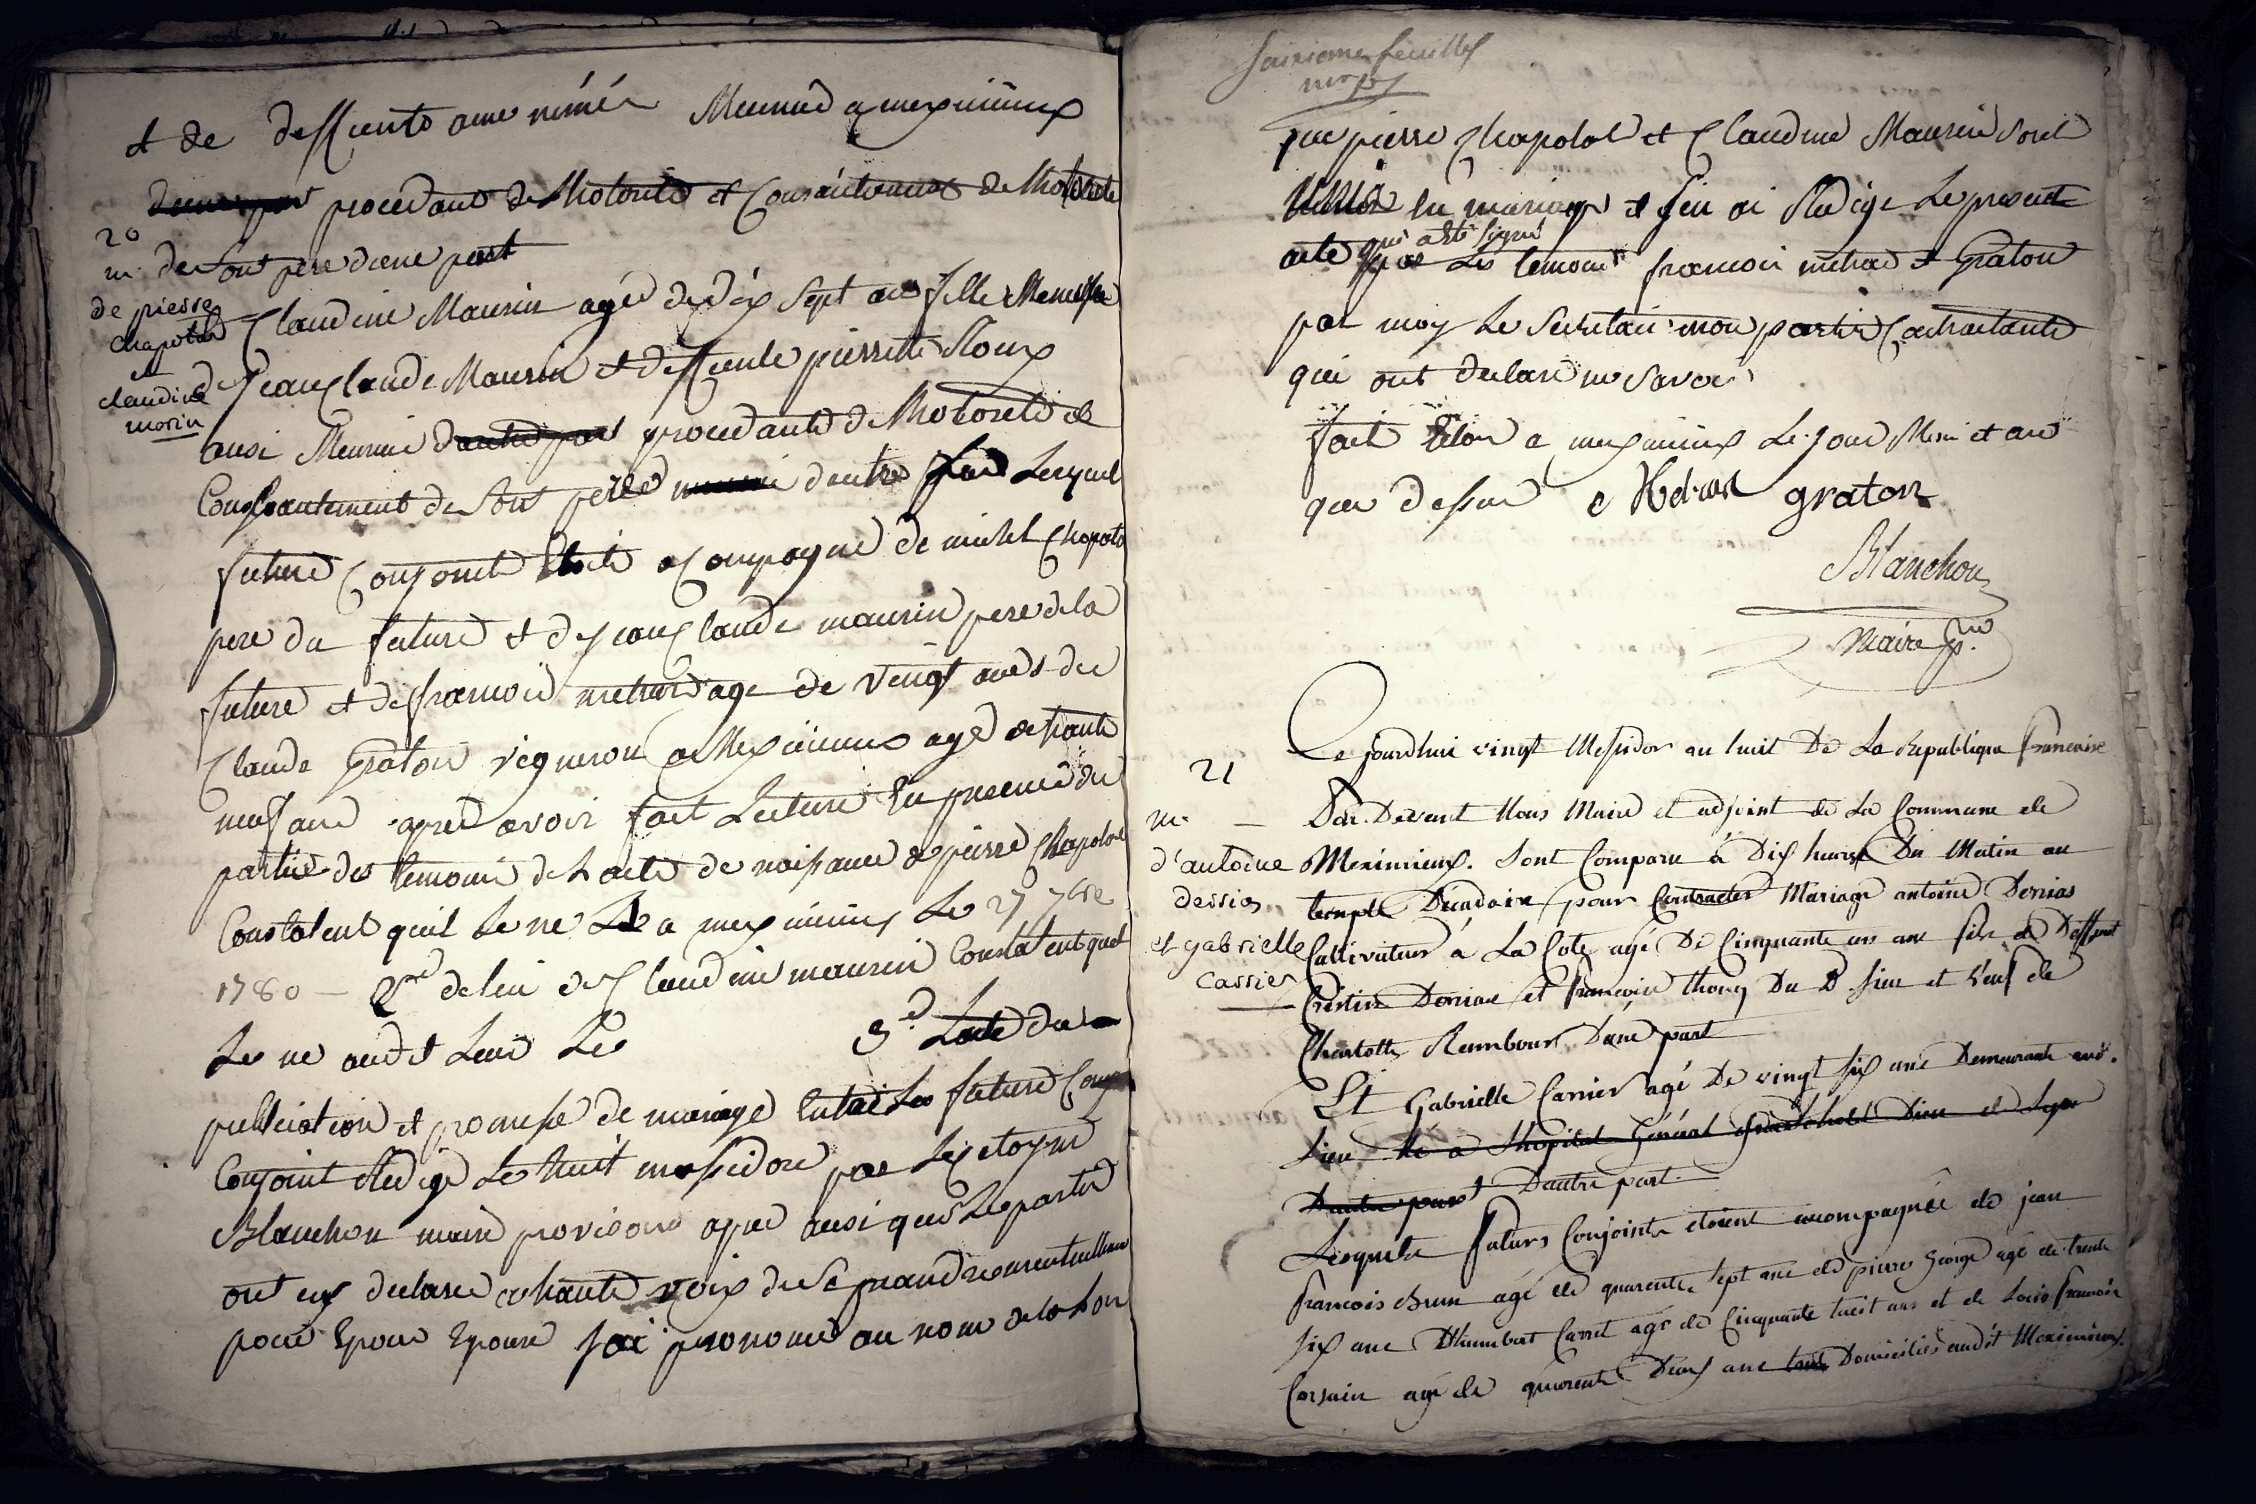 et de deffiente ane Meunié a meximieux
procedant de Lhotorité et Consaintement de Lhotorité
20
m. de
de pierre
chapotal
et
claudine
morin
de Sont pere dune part
Claudine Maurin agé de dix Sept ans fille
de Jean Claude Maurin et deffiente pierrette Roux
ausi Meunié procedante de Lhotorité et
Consantement de Sont pere dautre part Lesquel
future Conjoint Etoite acompagné de michel Chapota
pere du future et de Jean Claude maurin pere de la
future et de francois metrad age de vengt ans de
Claude Graton vigneron a Meximieux agé de trante
neuf ans apred avoir fait Lecture En presence des
partie des temoins de Lacte de naissance de pierre Chapotal
Constatent quil Le ne Le a meximieux Le 27 7bre
1780 — 2nd de lui de Claudine maurin Constatent quel
Le ne audt Lieu Le 3e Lacte de
publication et promesse de mariage Entre Les future Conjoi
Conjoint Redigé Le huit messidore par Le citoyen
Blanchon maire provisoire apred ausi que Les partie
ont eux declaré a haute voix de Se prandre mutuellement
pour Epoux Epouse Jai prononcé au nom de la Loi
saixieme feuillet
que pierre Chapotal et Claudine Maurin Sont
unis En mariage et Jen ai Redige Le present
acte qui a été signé
par Les temoins francois metrad et Graton
par moy Le Secretair non partie Contractante
qui ont declaré ne Savoir
fait a meximieux Le Jour Mois et an
que dessus Metrad graton
Blanchon
Maire pre
21
m. —
d'antoine
dessios
et gabrielle
cassier
Ce Jourdhui vingt Messidor an huit De La Republique francaise
Par Devant Nous Maire et adjoint de La Commune de
Meximieux. Sont Comparu à Dix heures Du Matin au
temple Décadaire pour Contracter Mariage antoine Derrias
Cultivateur à La Cote agé De Cinquante un ans fils de Deffunt
Derrias et francoise thomy Du D. Lieu et Veuf de
Charlotte Rembour D'une part
Et Gabrielle Carrier agé De vingt six ans Demeurante aud.
Lieu né a Lhopital Général grand hotel Dieu de Lyon
Dautre part Dautre part.
Lesquels futurs Conjoints étoient accompagnés de jean
francois Brun agé de quarente Sept ans de pierre George agé de trente
six ans D'humbert Carret agé de Cinquante huit ans et de Louis francois
Corsain agé de quarente Deux ans tous Domiciliés audit Meximieux.